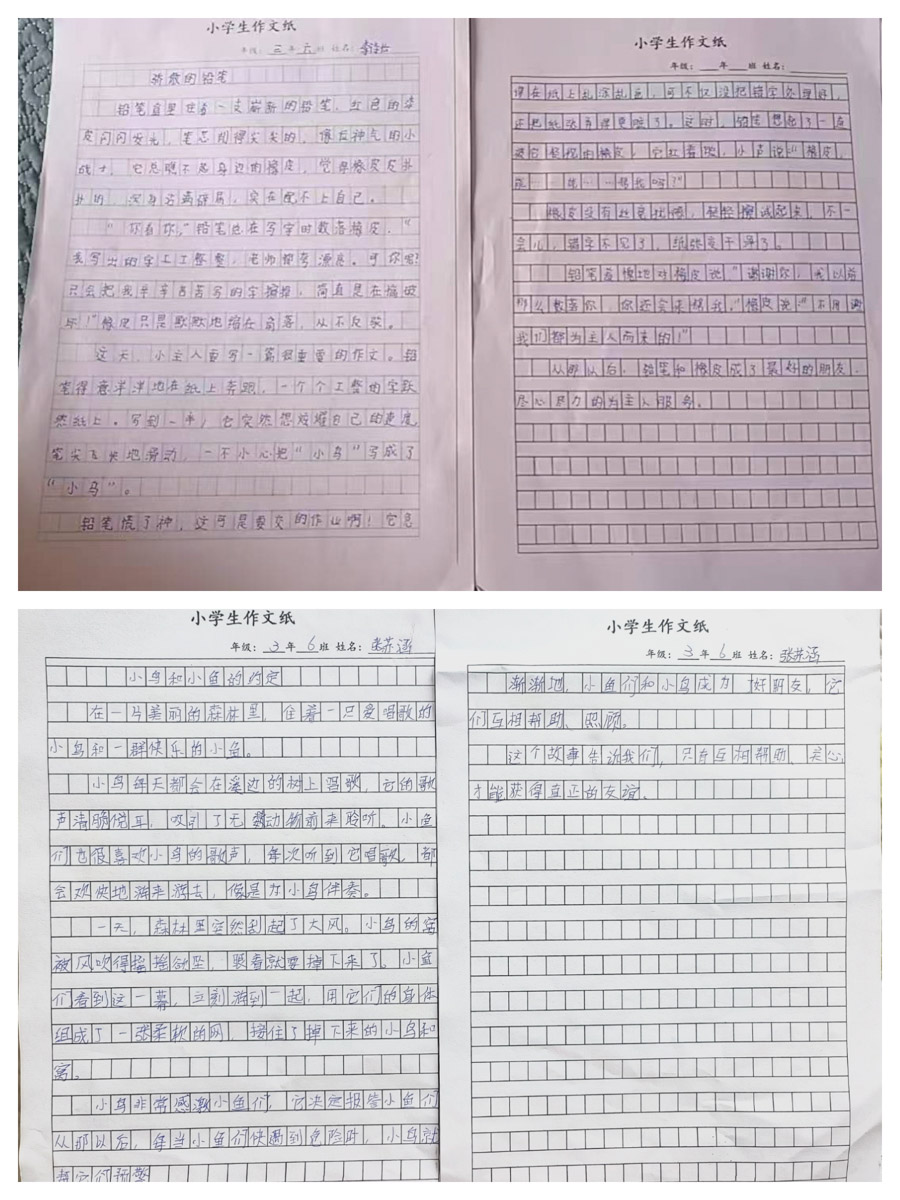 小学生作文纸
年级：三年六班 姓名：
骄傲的铅笔
铅笔盒里住着一支崭新的铅笔，红色的漆
皮闪闪发光，笔芯削得尖尖的，像个神气的小
战士。它总瞧不起身边的橡皮，觉得橡皮皮扑
扑的，实在配不上自己。
“你看你，”铅笔总在写字时数落橡皮，“
我写出的字工工整整，老师都夸漂亮。可你呢？
只会把我辛辛苦苦写的字擦掉，简直是在搞破
坏！”橡皮只是默默地缩在角落，从不反驳。
这天，小主人要写一篇很重要的作文。铅
笔得意洋洋地在纸上奔跑，一个个工整的字跃
然纸上。写到一半，它突然想炫耀自己的速度，
笔尖飞快地滑动，一不小心把“小鸟”写成了
“小马”。
铅笔慌了神，这可是要交的作业啊！它急
得在纸上乱涂乱画，可不仅没把错字处理好，
还把纸张弄得更脏了。这时，铅笔想起了一直
被它轻视的橡皮，它红着脸，小声说：“橡皮，
能……能……帮我吗？”
橡皮没有丝毫犹豫，轻轻擦试起来，不一
会儿，错字不见了，纸张变干净了。
铅笔羞愧地对橡皮说“谢谢你，我以前
那么数落你，你还会来帮我。”橡皮说：“不用谢
我们都为主人而来的！”
从那以后，铅笔和橡皮成了最好的朋友，
尽心尽力的为主人服务。
小学生作文纸
年级：＿＿年＿＿班 姓名：＿＿
小学生作文纸
年级：3年6班 姓名：张芥涵
小鸟和小鱼的约定
在一片美丽的森林里，住着一只爱唱歌的
小鸟和一群快乐的小鱼。
小鸟每天都会在溪边的树上唱歌，它的歌
声清脆悦耳，吸引了无数动物前来聆听。小鱼
们也很喜欢小鸟的歌声，每次听到它唱歌，都
会欢快地游来游去，像是为小鸟伴奏。
一天，森林里突然刮起了大风。小鸟的窝
被风吹得摇摇欲坠，眼看就要掉下来了。小鱼
们看到这一幕，立刻游到一起，用它们的身体
组成了一张柔软的网，接住了掉下来的小鸟和
窝。
小鸟非常感激小鱼们，它决定报答小鱼们
从那以后，每当小鱼们快遇到危险时，小鸟就
替它们预警
小学生作文纸
年级：3年6班 姓名：张芥涵
渐渐地，小鱼们和小鸟成为好朋友，它
们互相帮助、照顾。
这个故事告诉我们，只有互相帮助、关心
才能获得真正的友谊。